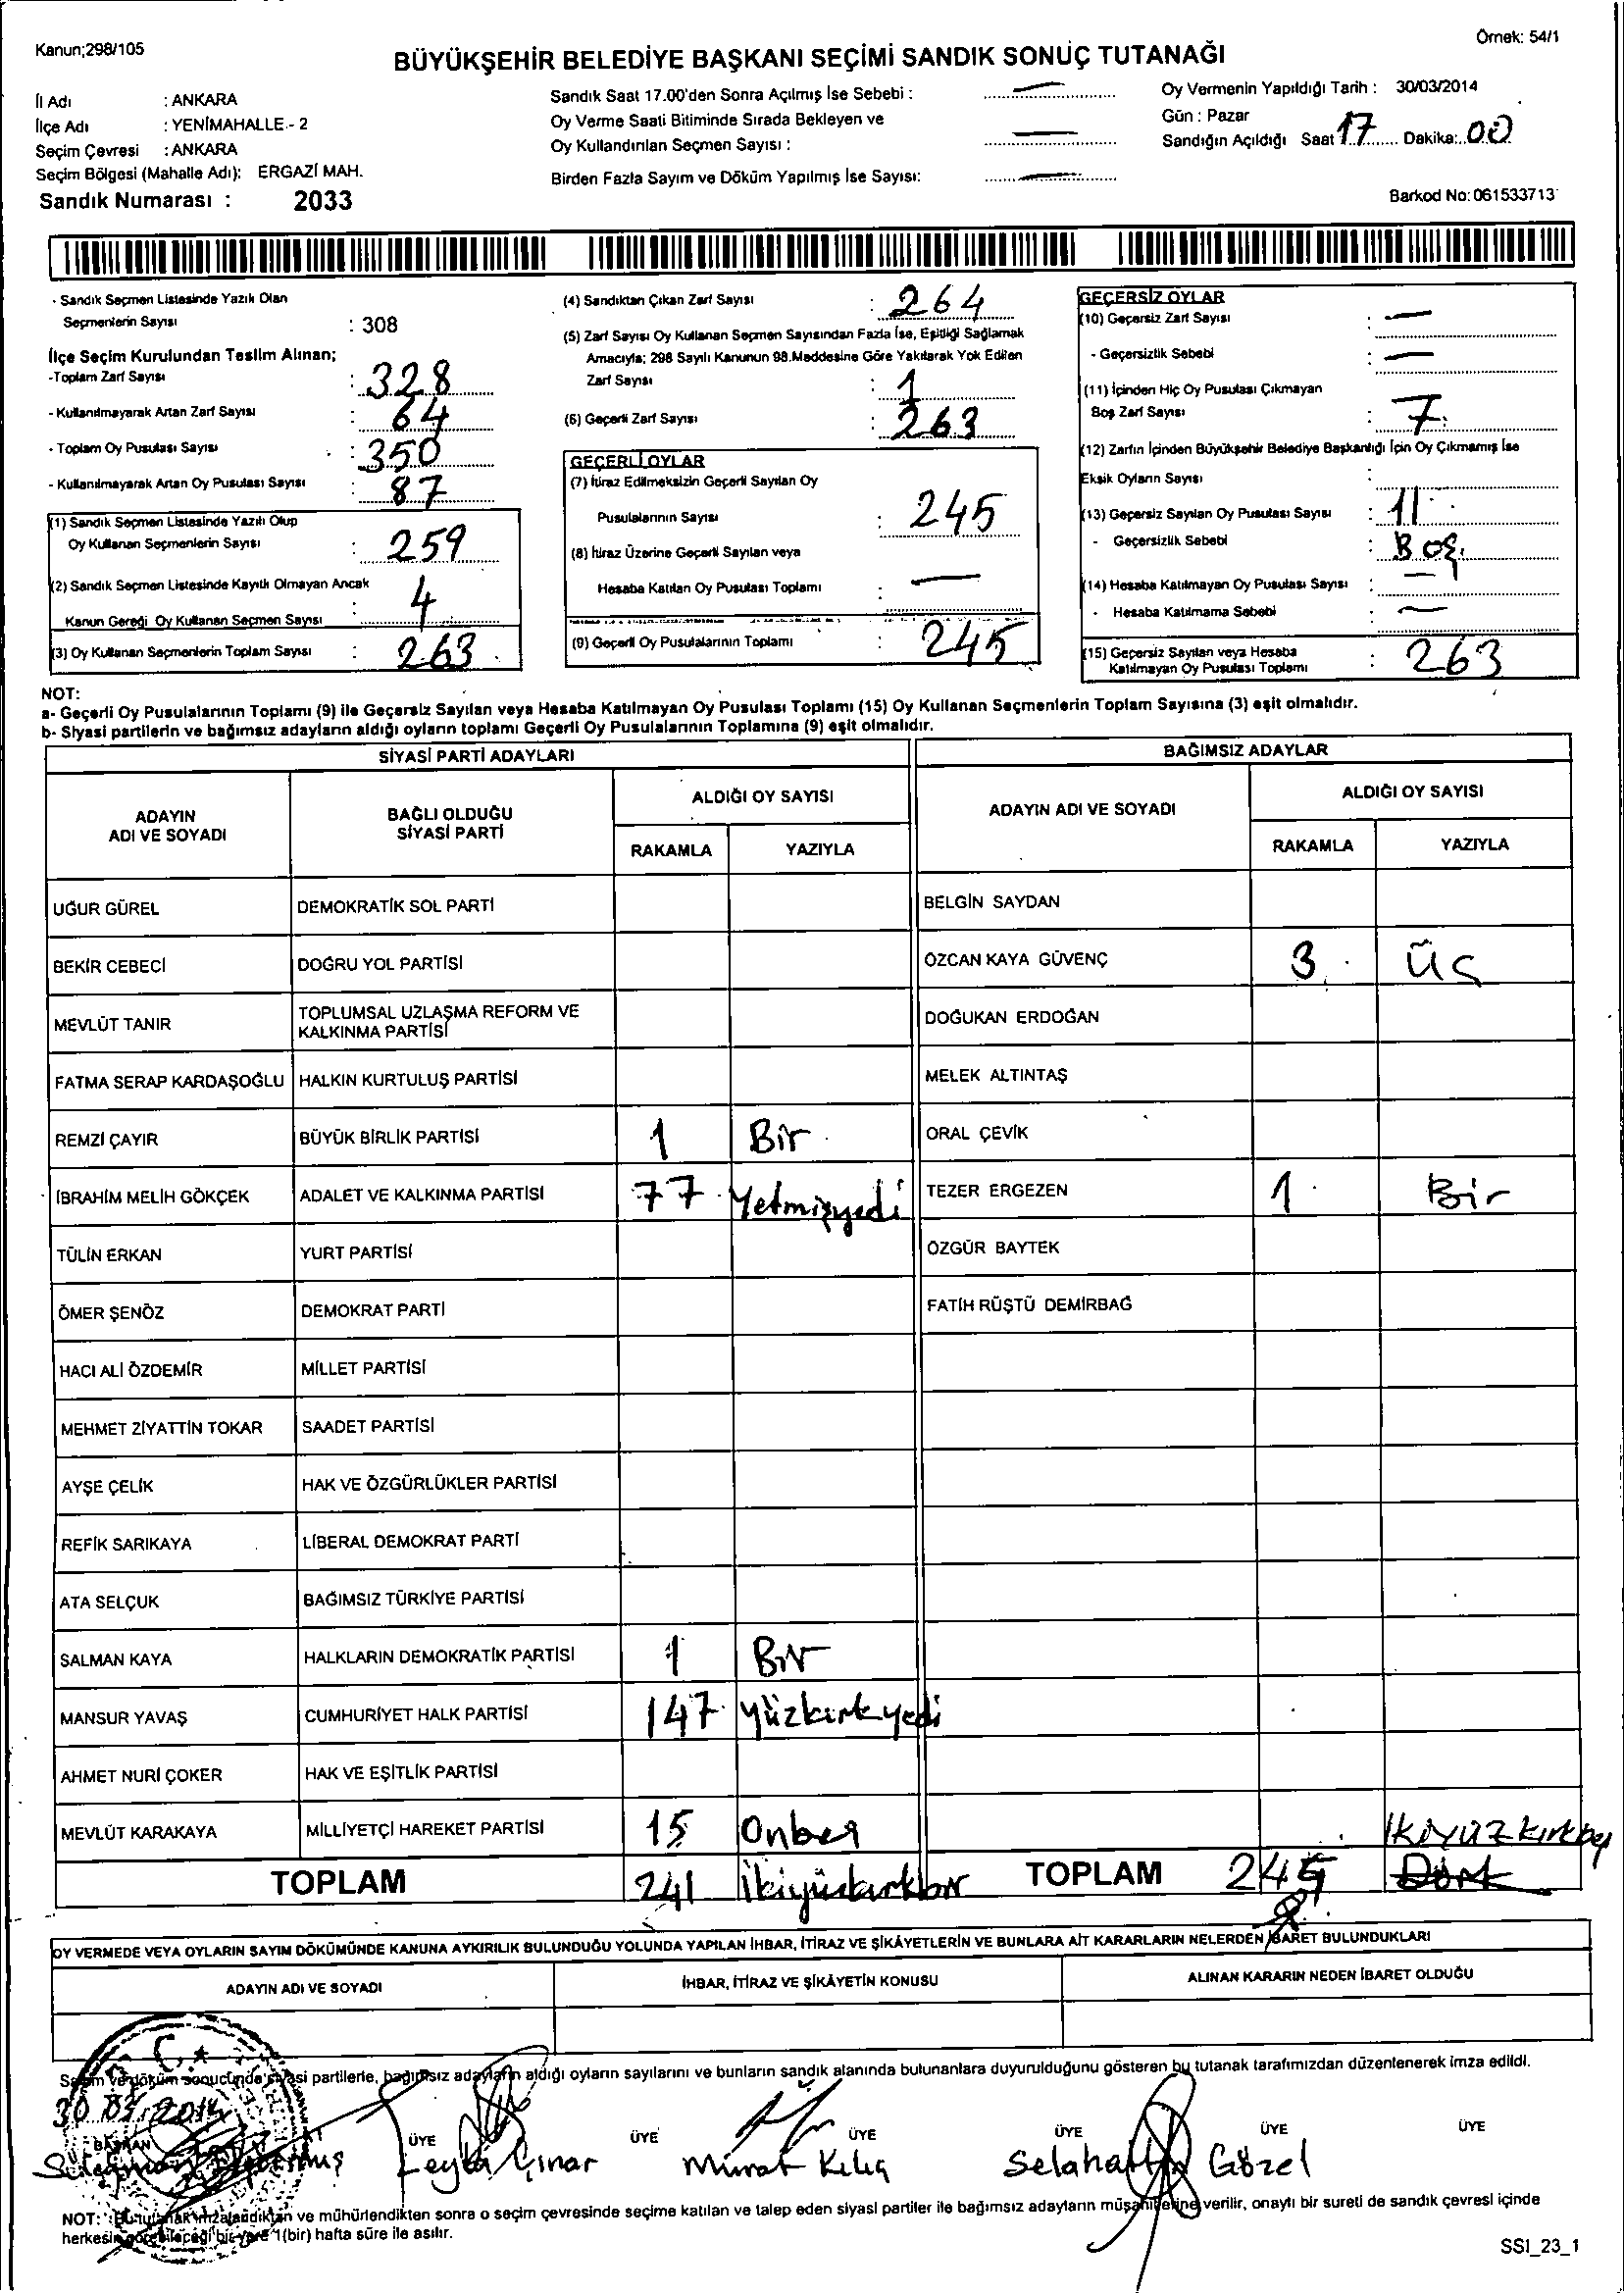 Kanun;298/105
Örnek: 54/1
BÜYÜKŞEHİR BELEDİYE BAŞKANI SEÇİMİ SANDIK SONUÇ TUTANAĞI
İl Adı : ANKARA
İlçe Adı : YENİMAHALLE - 2
Seçim Çevresi : ANKARA
Seçim Bölgesi (Mahalle Adı): ERGAZİ MAH.
Sandık Numarası : 2033
Sandık Saat 17.00'den Sonra Açılmış İse Sebebi : —
Oy Verme Saati Bitiminde Sırada Bekleyen ve
Oy Kullandırılan Seçmen Sayısı : —
Birden Fazla Sayım ve Döküm Yapılmış İse Sayısı: —
Oy Vermenin Yapıldığı Tarih : 30/03/2014
Gün : Pazar
Sandığın Açıldığı Saat 17 Dakika: 00
Barkod No: 061533713
- Sandık Seçmen Listesinde Yazılı Olan
Seçmenlerin Sayısı : 308
İlçe Seçim Kurulundan Teslim Alınan;
-Toplam Zarf Sayısı : 328
- Kullanılmayarak Artan Zarf Sayısı : 64
- Toplam Oy Pusulası Sayısı : 350
- Kullanılmayarak Artan Oy Pusulası Sayısı : 87
(1) Sandık Seçmen Listesinde Yazılı Olup
Oy Kullanan Seçmenlerin Sayısı : 259
(2) Sandık Seçmen Listesinde Kayıtlı Olmayan Ancak
Kanun Gereği Oy Kullanan Seçmen Sayısı : 4
(3) Oy Kullanan Seçmenlerin Toplam Sayısı : 263
(4) Sandıktan Çıkan Zarf Sayısı : 264
(5) Zarf Sayısı Oy Kullanan Seçmen Sayısından Fazla İse, Eşitliği Sağlamak
Amacıyla; 298 Sayılı Kanunun 98.Maddesine Göre Yakılarak Yok Edilen
Zarf Sayısı : 1
(6) Geçerli Zarf Sayısı : 263
GEÇERLİ OYLAR
(7) İtiraz Edilmeksizin Geçerli Sayılan Oy
Pusulalarının Sayısı : 245
(8) İtiraz Üzerine Geçerli Sayılan veya
Hesaba Katılan Oy Pusulası Toplamı : —
(9) Geçerli Oy Pusulalarının Toplamı : 245
GEÇERSİZ OYLAR
(10) Geçersiz Zarf Sayısı : —
- Geçersizlik Sebebi : —
(11) İçinden Hiç Oy Pusulası Çıkmayan
Boş Zarf Sayısı : 7
(12) Zarfın İçinden Büyükşehir Belediye Başkanlığı İçin Oy Çıkmamış İse
Eksik Oyların Sayısı :
(13) Geçersiz Sayılan Oy Pusulası Sayısı : 11
- Geçersizlik Sebebi : Boş
(14) Hesaba Katılmayan Oy Pusulası Sayısı : —
- Hesaba Katılmama Sebebi : —
(15) Geçersiz Sayılan veya Hesaba
Katılmayan Oy Pusulası Toplamı : 263
NOT:
a- Geçerli Oy Pusulalarının Toplamı (9) ile Geçersiz Sayılan veya Hesaba Katılmayan Oy Pusulası Toplamı (15) Oy Kullanan Seçmenlerin Toplam Sayısına (3) eşit olmalıdır.
b- Siyasi partilerin ve bağımsız adayların aldığı oyların toplamı Geçerli Oy Pusulalarının Toplamına (9) eşit olmalıdır.
SİYASİ PARTİ ADAYLARI BAĞIMSIZ ADAYLAR
ADAYIN ADI VE SOYADI BAĞLI OLDUĞU SİYASİ PARTİ ALDIĞI OY SAYISI ADAYIN ADI VE SOYADI ALDIĞI OY SAYISI
RAKAMLA YAZIYLA RAKAMLA YAZIYLA
UĞUR GÜREL DEMOKRATİK SOL PARTİ BELGİN SAYDAN
BEKİR CEBECİ DOĞRU YOL PARTİSİ ÖZCAN KAYA GÜVENÇ 3 Üç
MEVLÜT TANIR TOPLUMSAL UZLAŞMA REFORM VE KALKINMA PARTİSİ DOĞUKAN ERDOĞAN
FATMA SERAP KARDAŞOĞLU HALKIN KURTULUŞ PARTİSİ MELEK ALTINTAŞ
REMZİ ÇAYIR BÜYÜK BİRLİK PARTİSİ 1 Bir ORAL ÇEVİK
İBRAHİM MELİH GÖKÇEK ADALET VE KALKINMA PARTİSİ 77 Yetmişyedi TEZER ERGEZEN 1 Bir
TÜLİN ERKAN YURT PARTİSİ ÖZGÜR BAYTEK
ÖMER ŞENÖZ DEMOKRAT PARTİ FATİH RÜŞTÜ DEMİRBAĞ
HACI ALİ ÖZDEMİR MİLLET PARTİSİ
MEHMET ZİYATTİN TOKAR SAADET PARTİSİ
AYŞE ÇELİK HAK VE ÖZGÜRLÜKLER PARTİSİ
REFİK SARIKAYA LİBERAL DEMOKRAT PARTİ
ATA SELÇUK BAĞIMSIZ TÜRKİYE PARTİSİ
SALMAN KAYA HALKLARIN DEMOKRATİK PARTİSİ 1 Bir
MANSUR YAVAŞ CUMHURİYET HALK PARTİSİ 147 Yüzkırkyedi
AHMET NURİ ÇOKER HAK VE EŞİTLİK PARTİSİ
MEVLÜT KARAKAYA MİLLİYETÇİ HAREKET PARTİSİ 15 Onbeş
TOPLAM 241 İkiyüzkırkbir TOPLAM 245 İkiyüzkırkbeş Dört
OY VERMEDE VEYA OYLARIN SAYIM DÖKÜMÜNDE KANUNA AYKIRILIK BULUNDUĞU YOLUNDA YAPILAN İHBAR, İTİRAZ VE ŞİKÂYETLERİN VE BUNLARA AİT KARARLARIN NELERDEN İBARET BULUNDUKLARI
ADAYIN ADI VE SOYADI İHBAR, İTİRAZ VE ŞİKÂYETİN KONUSU ALINAN KARARIN NEDEN İBARET OLDUĞU
Sayım ve döküm sonucunda siyasi partilerle, bağımsız adayların aldığı oyların sayılarını ve bunların sandık alanında bulunanlara duyurulduğunu gösteren bu tutanak tarafımızdan düzenlenerek imza edildi.
30.03.2014
BAŞKAN ÜYE ÜYE ÜYE ÜYE ÜYE ÜYE
Süleyman Leyla Çınar Murat Kılıç Selahattin Gözel
NOT: Bu tutanak imzalandıktan ve mühürlendikten sonra o seçim çevresinde seçime katılan ve talep eden siyasi partiler ile bağımsız adayların müşahitlerine verilir, onaylı bir sureti de sandık çevresi içinde
herkesin görebileceği bir yere 1(bir) hafta süre ile asılır.
SSI_23_1